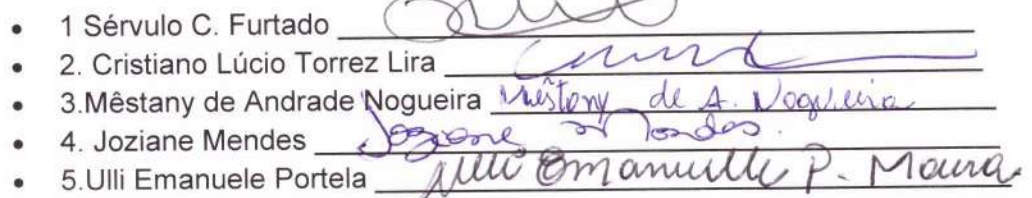 • 1 Sérvulo C. Furtado
• 2. Cristiano Lúcio Torrez Lira
• 3.Mêstany de Andrade Nogueira Mêstany de A. Nogueira
• 4. Joziane Mendes Joziane Mendes.
• 5.Ulli Emanuele Portela Ulli Emanuelle P. Moura